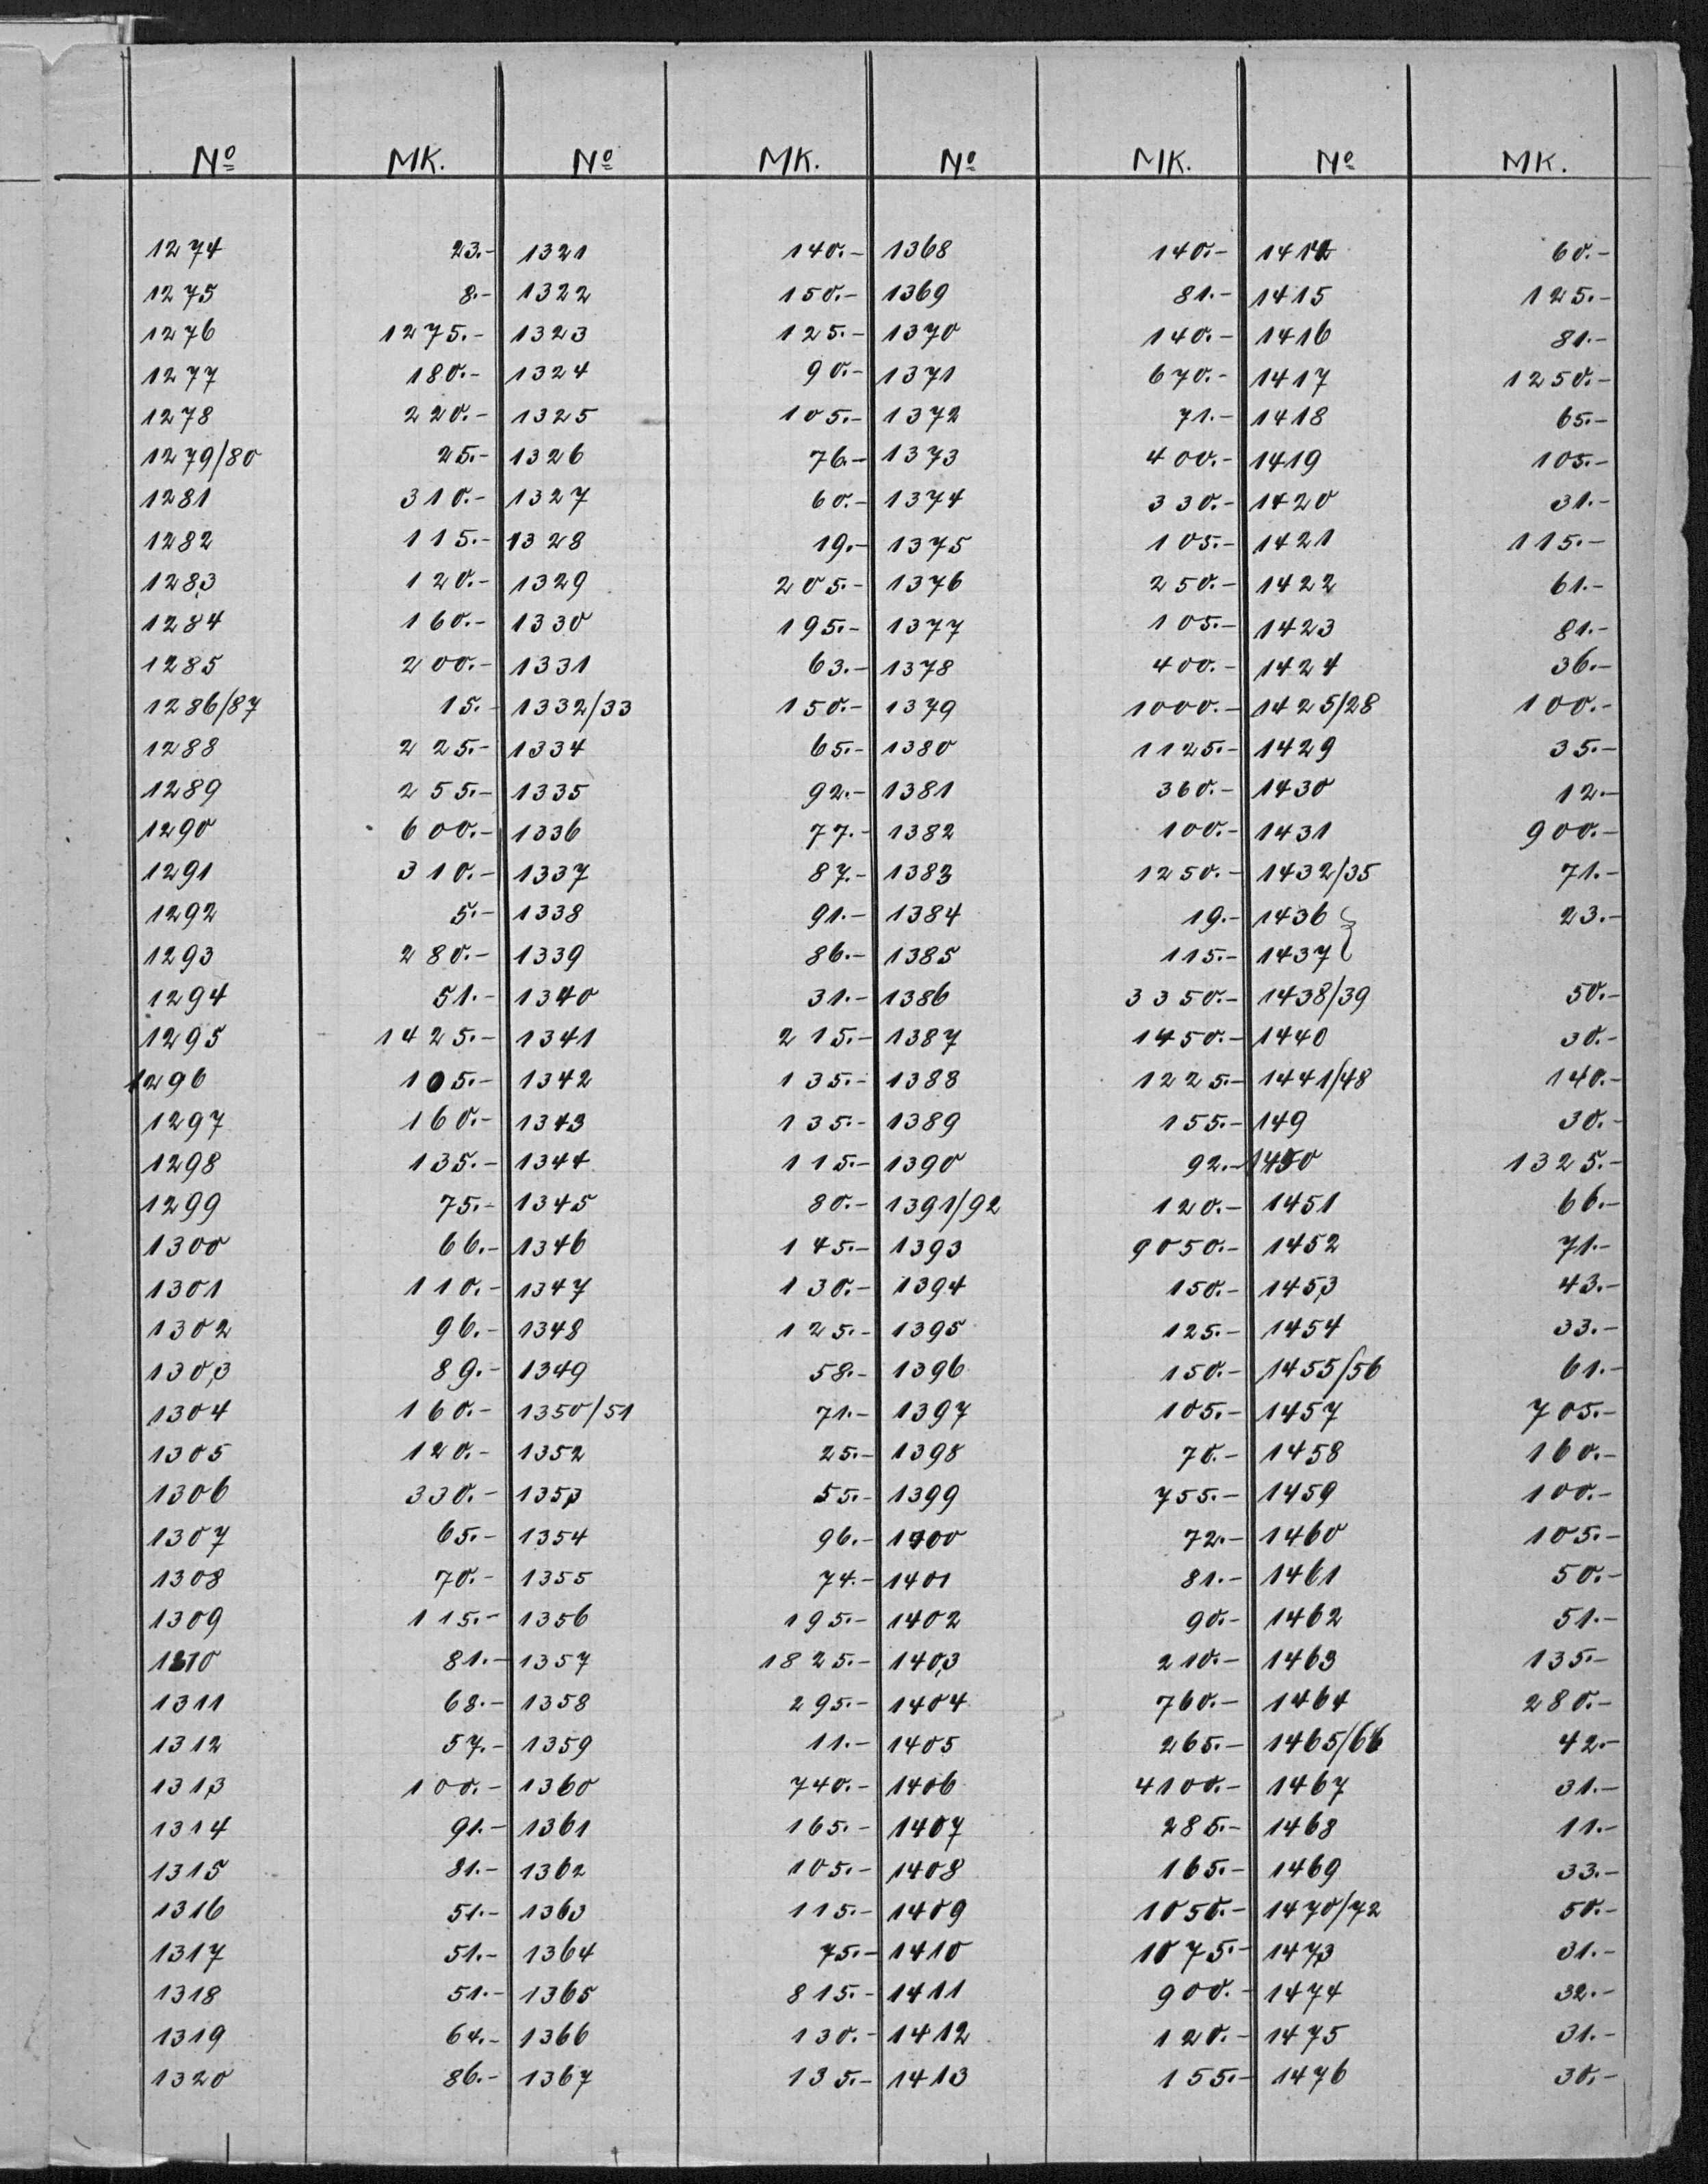 Nº MK. Nº MK. Nº MK. Nº MK.
1274 23.- 1321 140.- 1368 140.- 1414 60.-
1275 8.- 1322 150.- 1369 81.- 1415 125.-
1276 1275.- 1323 125.- 1370 140.- 1416 81.-
1277 180.- 1324 90.- 1371 670.- 1417 1250.-
1278 220.- 1325 105.- 1372 71.- 1418 65.-
1279/80 25.- 1326 76.- 1373 400.- 1419 105.-
1281 310.- 1327 60.- 1374 330.- 1420 31.-
1282 115.- 1328 19.- 1375 105.- 1421 115.-
1283 120.- 1329 205.- 1376 250.- 1422 61.-
1284 160.- 1330 195.- 1377 105.- 1423 81.-
1285 200.- 1331 63.- 1378 400.- 1424 36.-
1286/87 15.- 1332/33 150.- 1379 1000.- 1425/28 100.-
1288 225.- 1334 65.- 1380 1125.- 1429 35.-
1289 255.- 1335 92.- 1381 360.- 1430 12.-
1290 600.- 1336 77.- 1382 100.- 1431 900.-
1291 310.- 1337 87.- 1383 1250.- 1432/35 71.-
1292 5.- 1338 91.- 1384 19.- 1436 } 23.-
1293 280.- 1339 86.- 1385 115.- 1437
1294 51.- 1340 31.- 1386 3350.- 1438/39 50.-
1295 1425.- 1341 215.- 1387 1450.- 1440 30.-
1296 105.- 1342 135.- 1388 1225.- 1441/48 140.-
1297 160.- 1343 135.- 1389 155.- 149 30.-
1298 135.- 1344 115.- 1390 92.- 1450 1325.-
1299 75.- 1345 80.- 1391/92 120.- 1451 66.-
1300 66.- 1346 145.- 1393 9050.- 1452 71.-
1301 110.- 1347 130.- 1394 150.- 1453 43.-
1302 96.- 1348 125.- 1395 125.- 1454 33.-
1303 89.- 1349 58.- 1396 150.- 1455/56 61.-
1304 160.- 1350/51 71.- 1397 105.- 1457 705.-
1305 120.- 1352 25.- 1398 70.- 1458 160.-
1306 330.- 1353 55.- 1399 755.- 1459 100.-
1307 65.- 1354 96.- 1400 72.- 1460 105.-
1308 70.- 1355 74.- 1401 81.- 1461 50.-
1309 115.- 1356 195.- 1402 90.- 1462 51.-
1310 81.- 1357 1825.- 1403 210.- 1463 135.-
1311 68.- 1358 295.- 1404 760.- 1464 280.-
1312 57.- 1359 11.- 1405 265.- 1465/66 42.-
1313 100.- 1360 740.- 1406 4100.- 1467 31.-
1314 91.- 1361 165.- 1407 285.- 1468 11.-
1315 81.- 1362 105.- 1408 165.- 1469 33.-
1316 51.- 1363 115.- 1409 1050.- 1470/72 50.-
1317 51.- 1364 75.- 1410 1075.- 1473 31.-
1318 51.- 1365 815.- 1411 900.- 1474 32.-
1319 64.- 1366 130.- 1412 120.- 1475 31.-
1320 86.- 1367 135.- 1413 155.- 1476 30.-